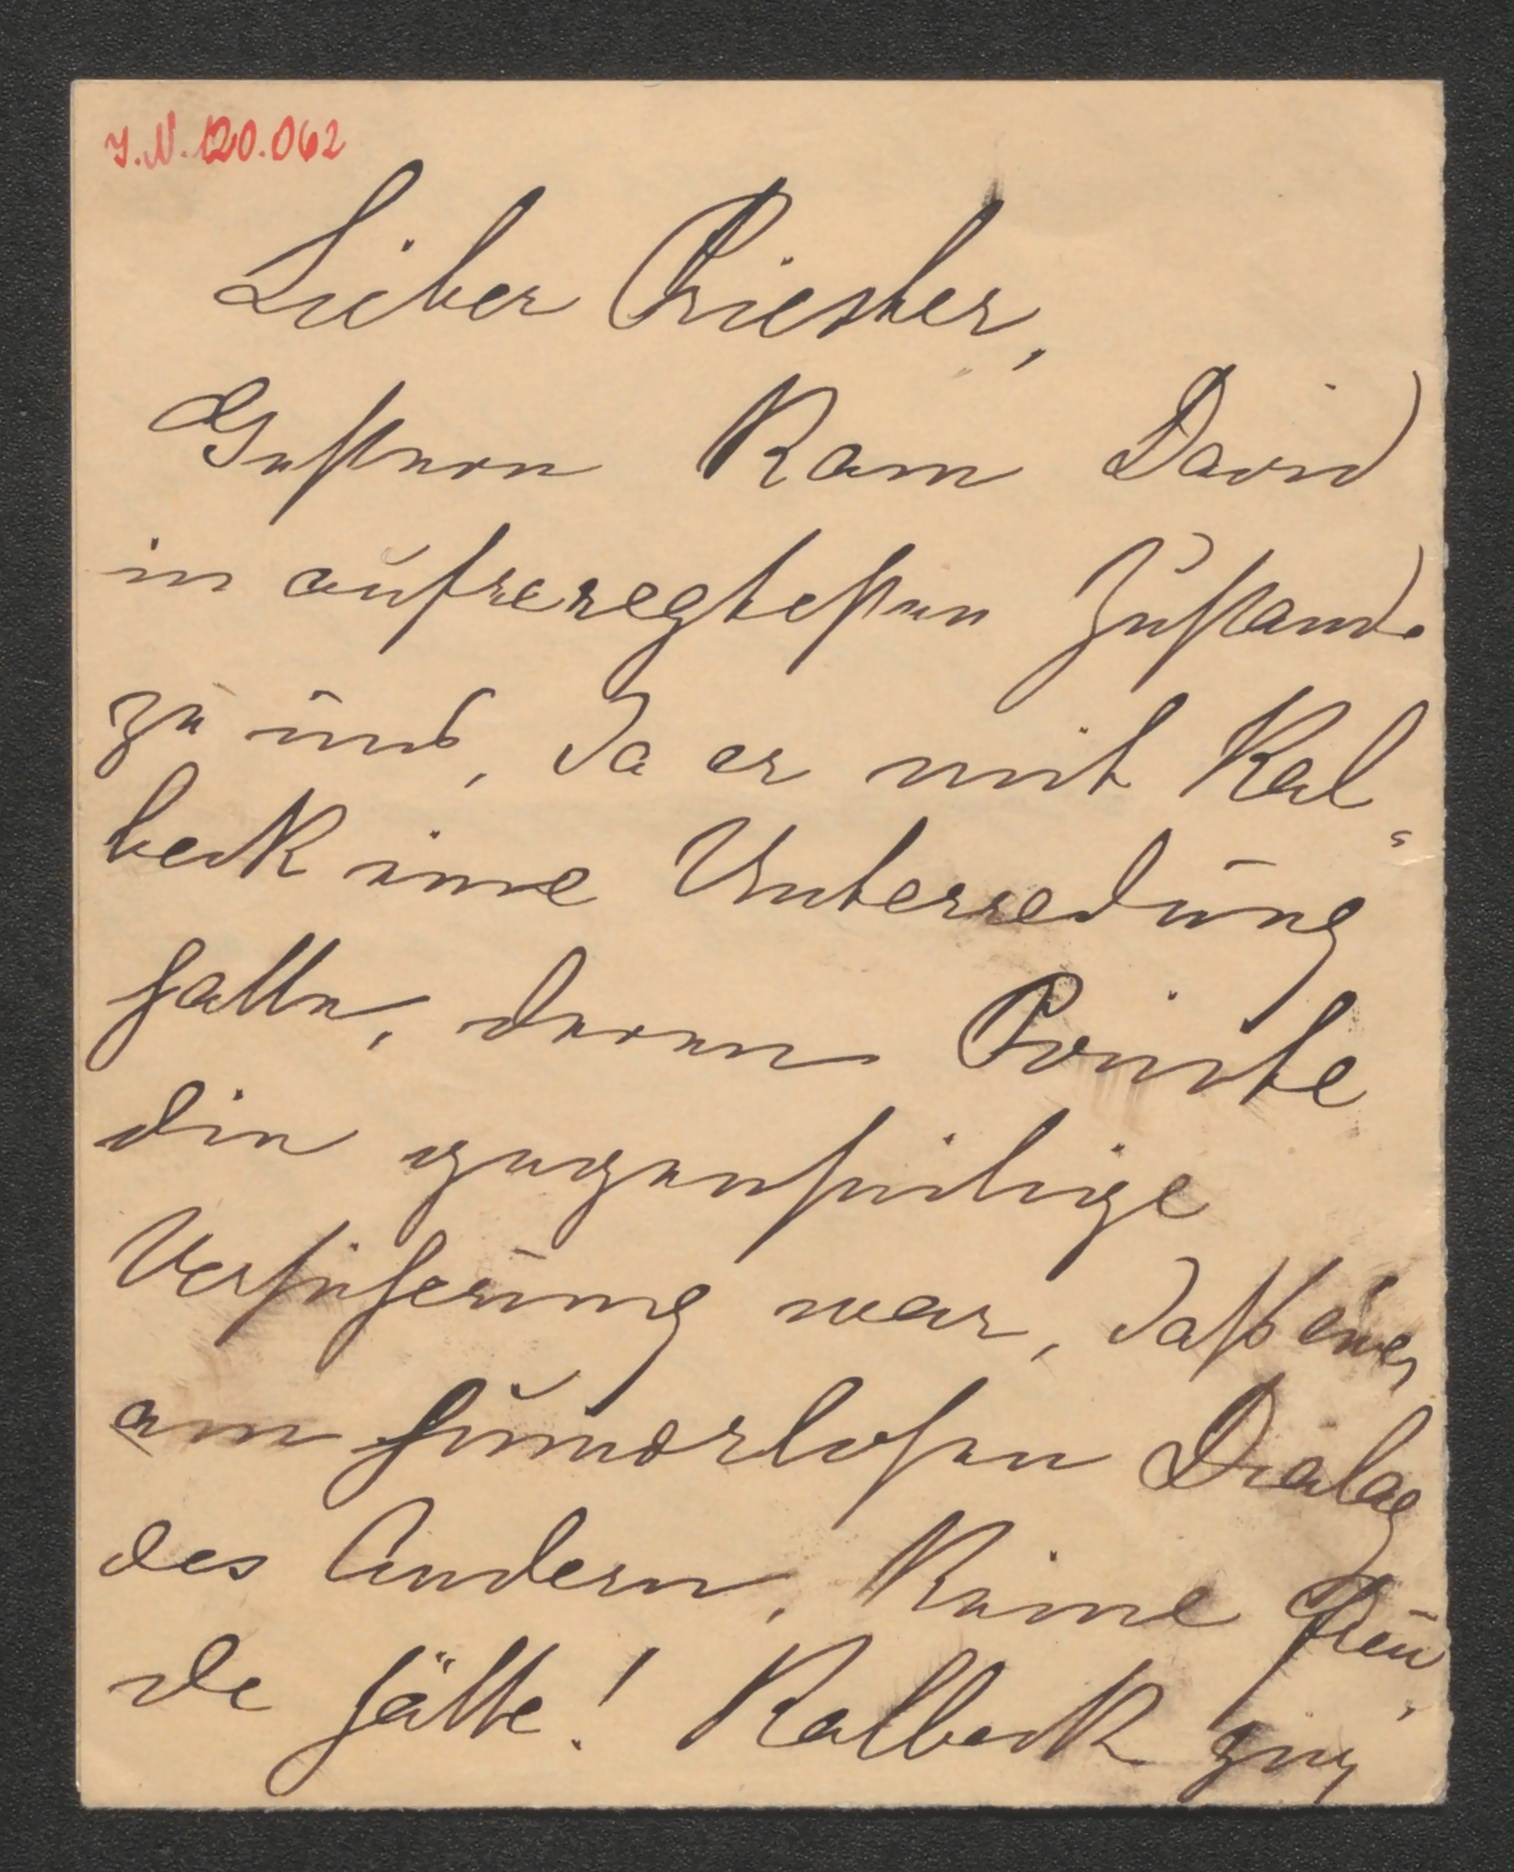 J.N. 120.062
Lieber Priester,
Gestern Kam David
in aufreregtesten Zustande
zu uns, da er mit Kal-
beck eine Unterredung
hatte, deren Pointe
die gegenseitige
Versicherung war, dass einer
am humorlosen Dialog
des Andern, Keine Freu-
de hätte! Kalbeck ging